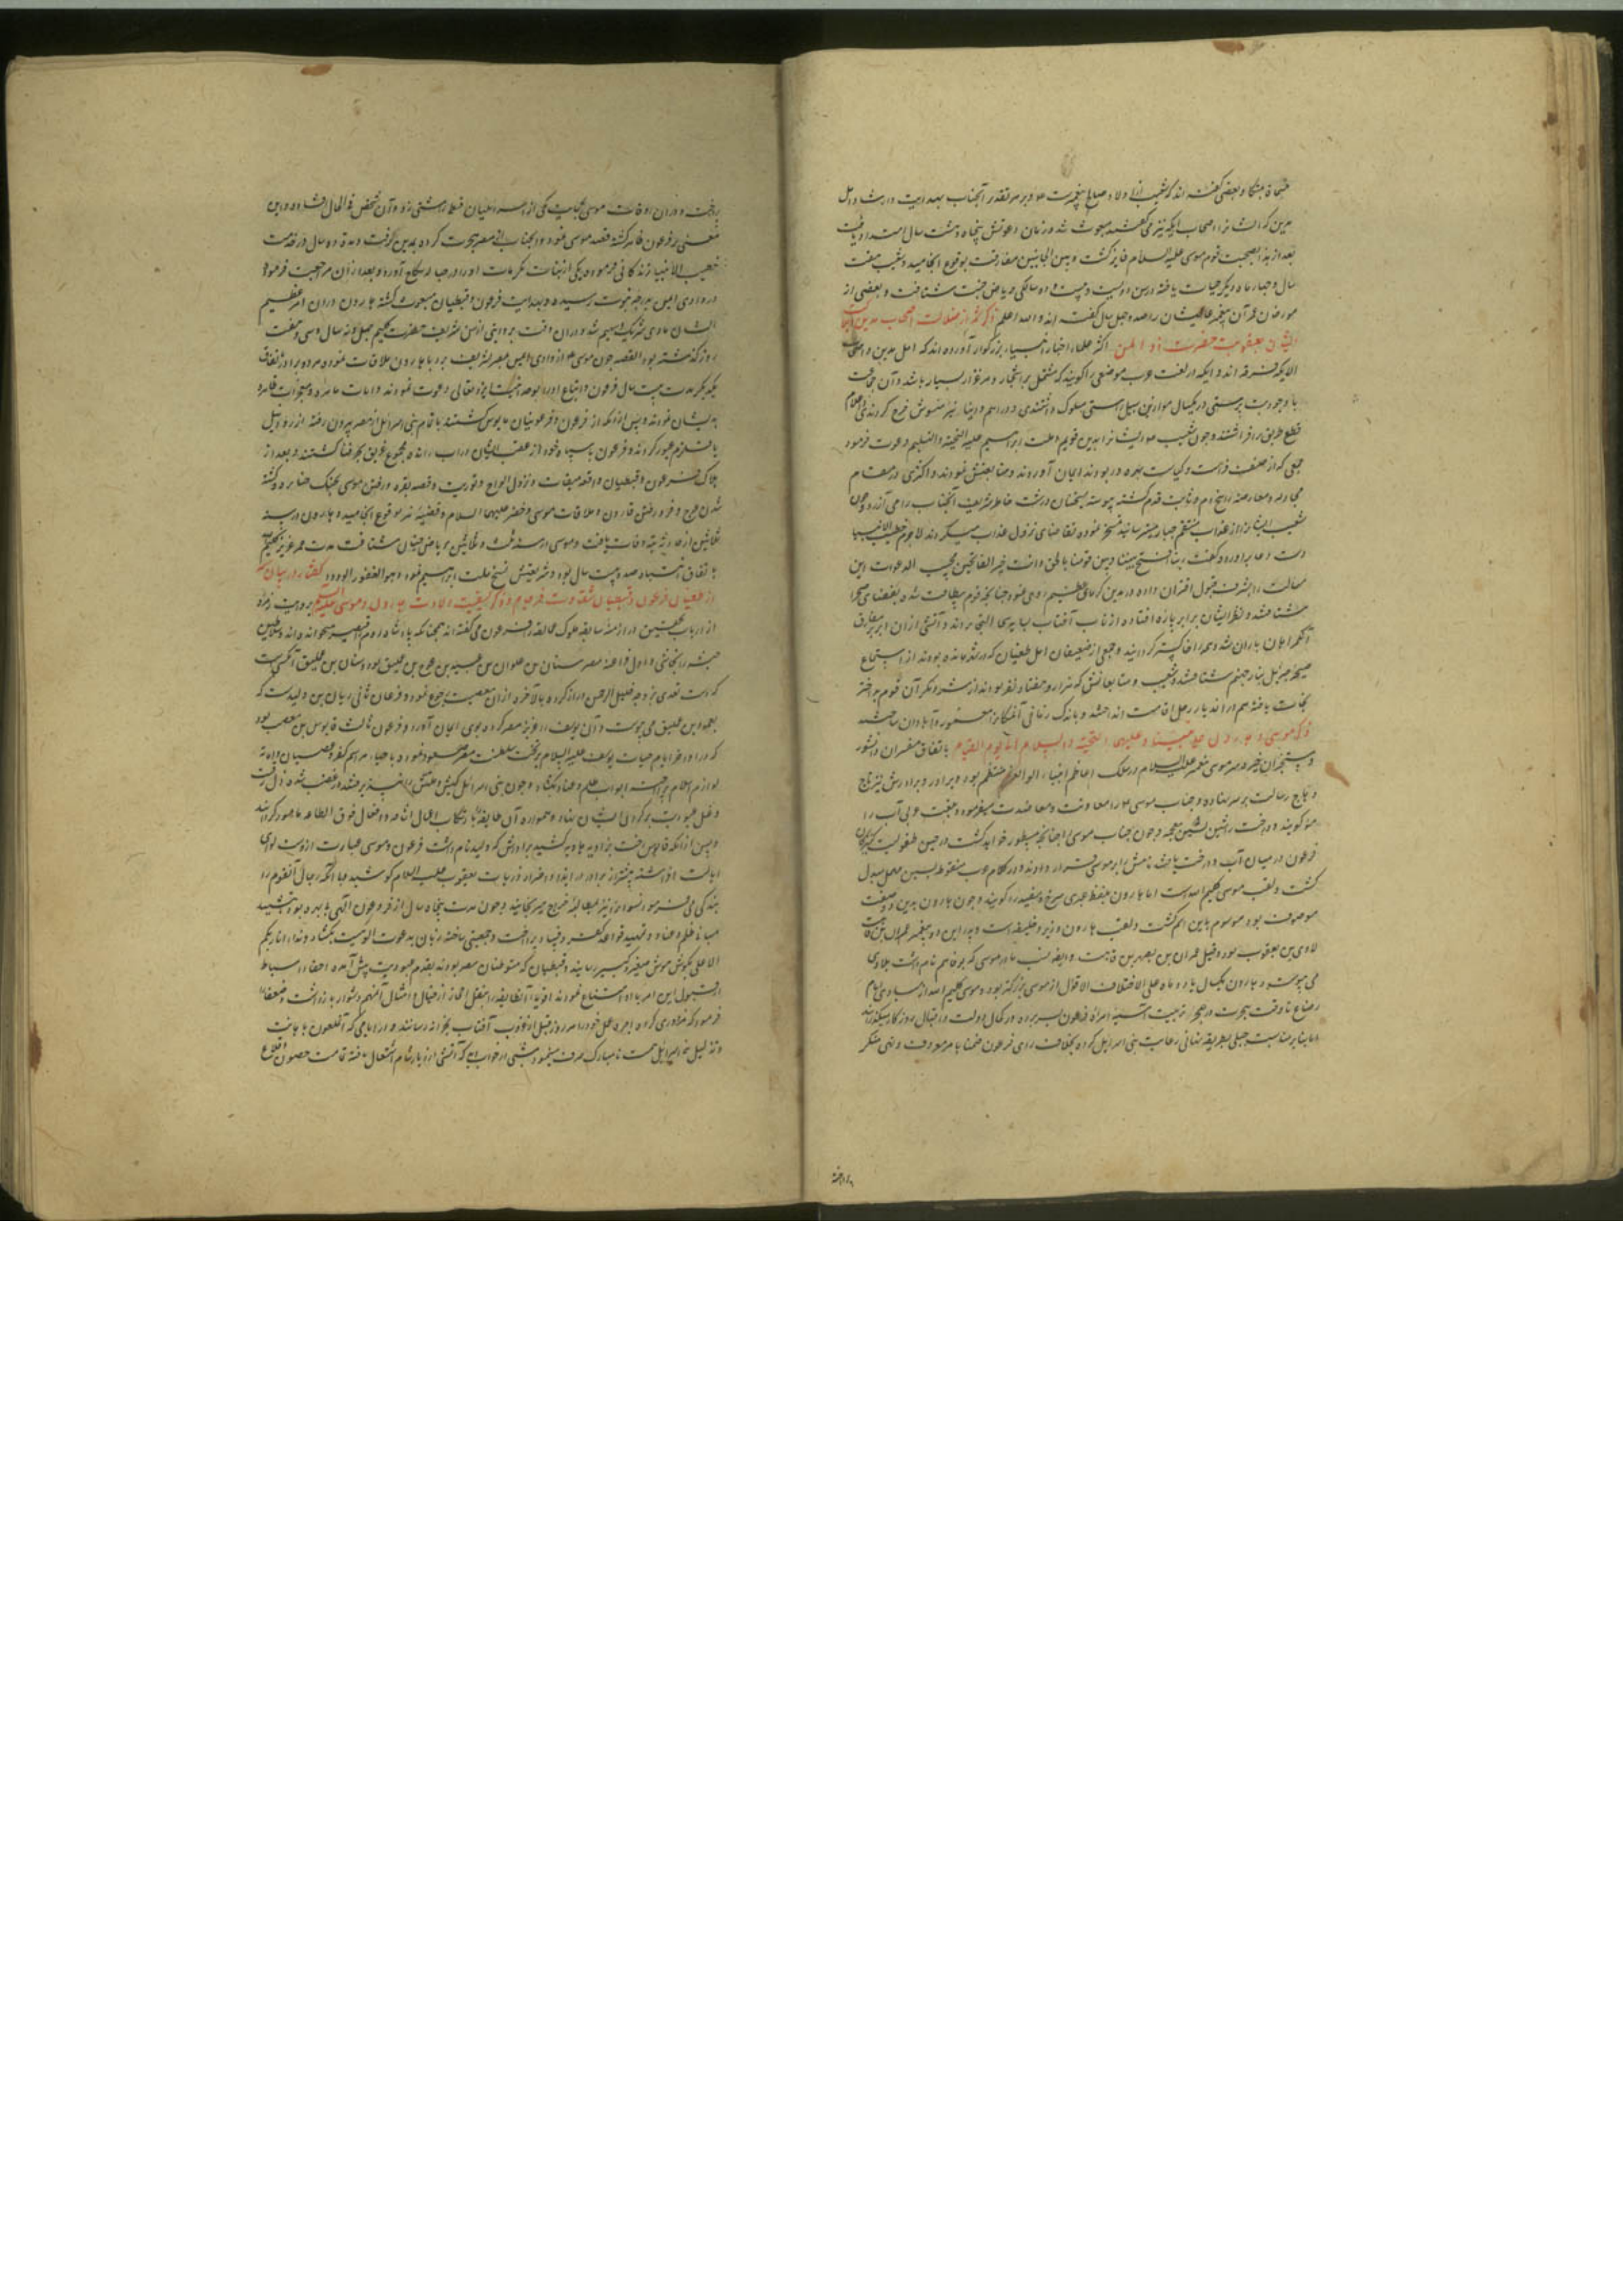 و بعضی گفته اند که شعیب از اولاد صالح پیغمبرست و بر هر تقدیر آنجناب بهدایت و ارشاد اهل
مدین که ایشانرا اصحاب ایکه نیز می گفتند مبعوث شد و زمان دعوتش پنجاه و هشت سال امتداد یافت
بعد از بصحبت قوم موسی علیه السلام فایز گشت و بین الجانبین مفارقت بوقوع انجامید و شعیب هفت
سال و چهار ماه دیگر حیات یافته در سن دویست و بیست و دو سالگی بریاض جنت شتافت و بعضی از
مورخان عمر آن پیغمبر عالیشان را صد و چهل سال گفته اند والله اعلم ذکر شمه از ضلالت اصحاب مدین
ایشان بعقوبت حضرت ذو المنن اکثر علماء اخبار انبیاء بزرگوار آورده اند که اهل مدین و اصحاب
الایکه یک فرقه اند و ایکه در لغت عرب موضعی را گویند که مشتمل بر اشجار و مرغزار بسیار باشد و آن جماعت
با وجود بت پرستی در کیل و موازین سبیل راستی مسلوک نداشتندی و دراهم و دینار نیز مغشوش خرج کردندی
قطع طریق برافراشتند و چون شعیب ایشانرا بدین قویم و ملت ابراهیم علیه التحیة و التسلیم دعوت فرمود
جمعی که از صفت فراست و کیاست بهره ور بودند ایمان آوردند و متابعتش نمودند و اکثری در مقام
مجادله و معارضه راسخ دم و ثابت قدم گشته پیوسته بسخنان درشت خاطر شریف آنجناب را می آزردند و چون
شعیب ایشانرا از عذاب منتقم جبار میترسانید تمسخر نموده تقاضای نزول عذاب میکردند لاجرم خطیب الانبیا
دست دعا برآورده گفت ربنا افتح بیننا و بین قومنا بالحق و انت خیر الفاتحین مجیب الدعوات این
مسألت را بشرف قبول اقتران داده در مدین گرمای عظیم روی نمود چنانچه قوم بیطاقت شده بفضای صحرا
شتافتند و نظر ایشان بر ابر پاره افتاده از تاب آفتاب بسایه‌ی التجا بردند و آتشی از آن ابر
بر اهل آن باران شد و همه را خاکستر گردانید و جمعی از ضعیفان اهل طغیان که در شهر مانده بودند از استماع
صیحه جبرئیل بنار جهنم شتافتند و شعیب و متابعانش که هزار و هفتصد نفر بودند از شر و مکر آن قوم
نجات یافته هم در آن دیار رحل اقامت انداختند و باندک زمانی آنمکان را معمور و آبادان ساختند
ذکر موسی و هارون علی نبینا و علیهما التحیة والسلام الی یوم القیام باتفاق مفسران دانشور
و مستخبران خبیر حضرت موسی علیه السلام در سلک اعاظم انبیاء اولوالعزم منتظم بود و برادرش نیز تاج
و هاج رسالت بر سر نهاده و جناب موسی را معاونت و معاضدت میفرمود و بلغت عبری آب را
مو گویند و درخت را شین معجمه و چون جناب موسی چنانچه مسطور خواهد گشت در حین طفولیت
فرعون در میان آب و درخت یافت نامش را بر موسی قرار دادند و در کلام عرب منقوطه بسین مهمل مبدل
گشت و لقب موسی کلیم الله است اما هارون بلفظ عبری سرخ و سفید را گویند و چون هارون بدین صفت
موصوف بود موسوم باین اسم گشت و لقب هارون وزیر و خلیفه است و پدر این دو پیغمبر عمران بن قاهث
لاوی بن یعقوب بود و قیل عمران بن یصهر بن قاهث و ایضا نسب مادر موسی که نام داشت بلاوی
می پیوست و هارون بیکسال یا دو ماه علی اختلاف الاقوال از موسی بزرگتر بود و موسی کلیم الله از مبادی ایام
رضاع تا وقت هجرت در حجر تربیت آسیه امراة فرعون بسر برده در کمال دولت و اقبال روزگار میگذرانید
اما بنا بر مناسبت جبلی بطریقه پنهانی رعایت بنی اسرائیل کرده بخلاف رای فرعون ضمنا بامر معروف و نهی منکر
پرداخته
و در آن اوقات موسی بحمایت یکی از اسرائیلیان قبطی را مشتی زد و آن شخص فی الحال افتاده و این
معنی بر فرعون ظاهر گشته قصد موسی نمود و آنجناب از مصر هجرت کرده بمدین رفت و مدة ده سال در خدمت
خطیب الانبیا زندگانی فرموده یکی از بنات مکرمات او را در حباله نکاح آورده و بعد از آن مراجعت فرموده
در وادی ایمن بدرجه نبوت رسیده و بهدایت فرعون و قبطیان مبعوث گشته هارون در آن امر عظیم
ایشان با وی شریک و سهیم شد و در آن وقت بروایتی از سن شریف حضرت کلیم چهل و نه سال و سی و هفت
روز گذشته بود القصه چون موسی از وادی ایمن بمصر تشریف برد با هارون ملاقات نموده هر دو برادر باتفاق
یکدیگر مدت بیست سال فرعون و اتباع او را بوحدانیت ایزد تعالی دعوت نمودند و آیات باهره و معجزات ظاهره
بدیشان نمودند و پس از آنکه از فرعون و فرعونیان مایوس گشتند با تمام بنی اسرائیل از مصر بیرون رفته از رود نیل
یا قلزم عبور کردند و فرعون با سپاه خود از عقب ایشان در آب رانده مجموع غریق بحر فنا گشتند و بعد از
هلاک فرعون و قبطیان واقعه میقات و نزول الواح و توریت و قصه بقره و رفتن موسی بجنگ جبابره و کشته
شدن عوج و فرو رفتن قارون و ملاقات موسی و خضر علیهما السلام و قضیه تیه بوقوع انجامید و هارون در سنه
ثلاثین از حادثه تیه وفات یافت و موسی در سنه ثلث و ثلاثین بریاض جنان شتافت مدت عمر عزیز کلیم
باتفاق صد و بیست سال بود و شریعتش نسخ ملت ابراهیم نمود و هو الغفور الودود گفتار در بیان شمه
از طغیان فرعون و قبطیان شقاوت فرجام و ذکر کیفیت ولادت هارون و موسی علیهما السلام بروایت زمره
از ارباب تحقیق در ازمنه سابقه ملوک عمالقه را فرعون می گفته اند همچنانکه پادشاه روم را قیصر میخوانده اند و سلاطین
حبشه را نجاشی و اول فراعنه مصر سنان بن علوان بن عبید بن عوج بن عملیق بود و سنان بن عملیق آنکس است
که دست تعدی بزوجه خلیل الرحمن دراز کرده بالاخره از آن معصیت رجوع نمود و فرعون ثانی ریان بن ولید است که
بعملیق می پیوست و آن یوسف را عزیز مصر کرده بوی ایمان آورد و فرعون ثالث قابوس بن مصعب بود
که در اواخر ایام حیات یوسف علیه السلام بر تخت سلطنت مصر صعود نموده باحیاء مراسم کفر و عصیان و ازاله
لوازم اسلام پرداخت ابواب ظلم و عناد بگشاد و چون بنی اسرائیل کیش و ملتش را نپذیرفتند در غضب شده ذل رقیت
و غل عبودیت بر گردن ایشان نهاد و همواره آن طایفه را بارتکاب اعمال شاقه و افعال فوق الطاقه مامور گردانید
و پس از آنکه قابوس رخت بزاویه هاویه کشید برادرش که ولید نام داشت فرعون موسی عبارت از وست لوای
ایالت افراشته بیشتر از برادر در ایذاء و اضرار ذریات یعقوب علیه السلام کوشید چنانکه رجال آنقوم را
بندگی می فرمود و نسوانرا نیز بمطالبه خراج میرنجانید و چون مدت پنجاه سال از فرعون الهی بی بهره بود بتشیید
مبانی ظلم و عناد و تمهید قواعد کفر و فساد پرداخت و جمعیتی ساخته زبان بدعوت الوهیت بگشاد و نداء انا ربکم
الاعلی بگوش هوش صغیر و کبیر رسانید و قبطیان که متوطنان مصر بودند بقدم عبودیت پیش آمده احفاد اسباط
از قبول این امر ابا و امتناع نمودند اقویاء آنطایفه را بنقل احجار از جبال و امثال آن مهم دشوار بازداشت و ضعفا را
فرمود که مزدوری کرده اجره عمل خود را هر روز قبل از غروب آفتاب بخزانه رسانند و در ایامی که آنملعون باهانت
و تذلیل بنی اسرائیل همت نامبارک مصروف مینمود شبی در خواب دید که آتشی از دیار شام اشتعال یافته تمامت حصون و قلاع